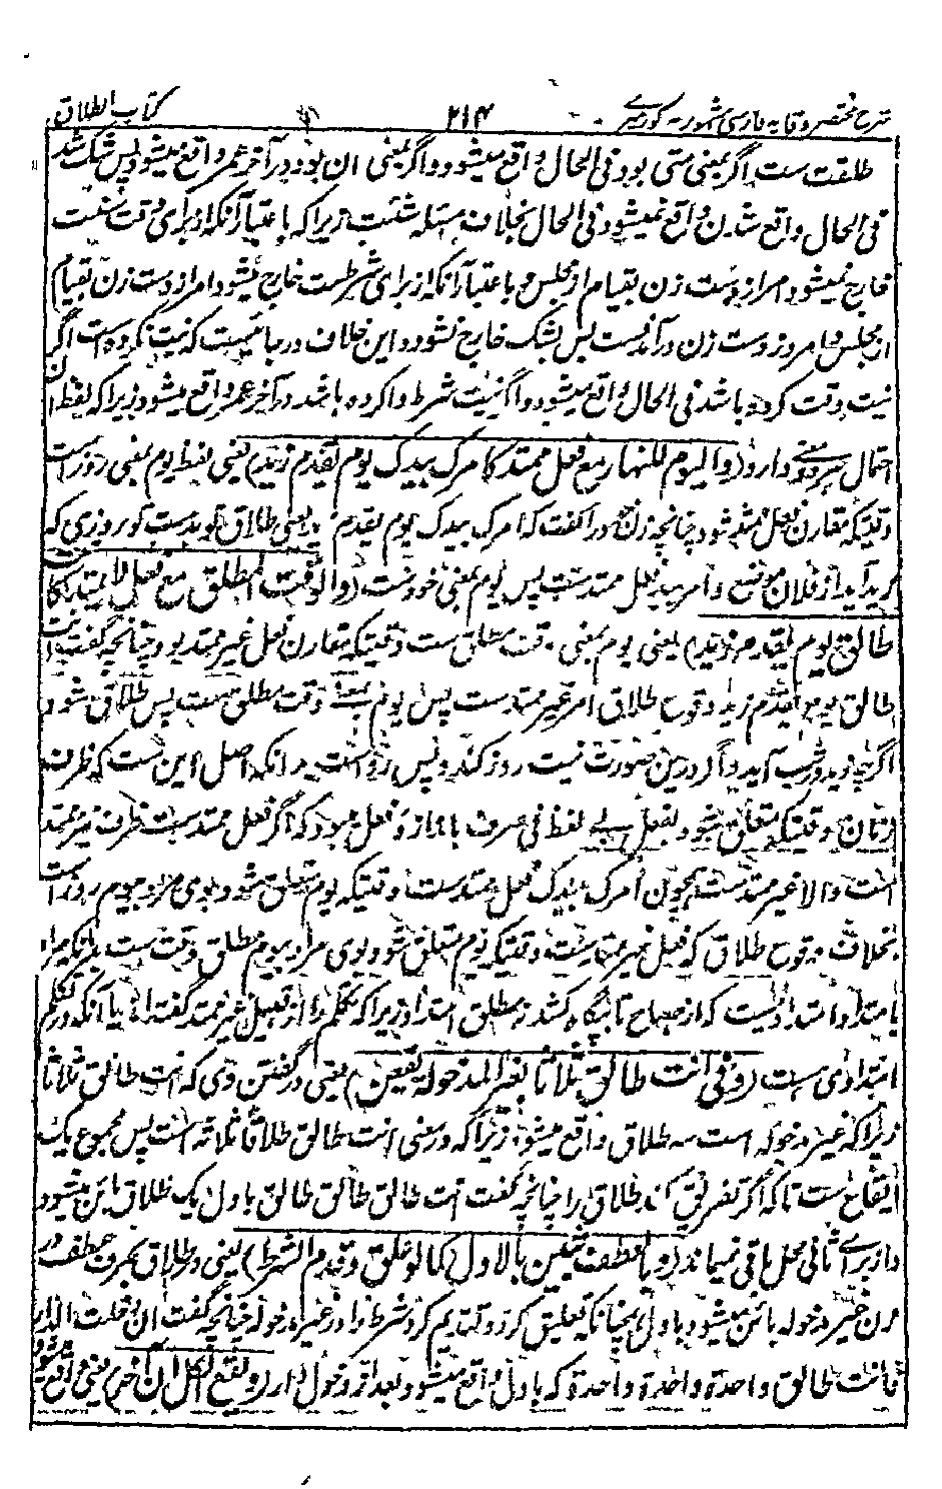 شرح مختصر وقایه فارسی مشهور به کورسی ۲۱۴ کتاب الطلاق
طلقت ست اگر بمعنی متی بود فی الحال واقع میشود و اگر بمعنی ان بود در آخر عمر واقع میشود پس شک شد
فی الحال واقع شدن واقع نمیشود فی الحال بخلاف مسئله مشیت زیرا که باعتبار آنکه از برای وقت ست
خارج نمیشود امر از دست زن بقیام از مجلس و باعتبار آنکه از برای شرطست خارج میشود امر از دست زن بقیام
از مجلس و امر در دست زن در آمدست پس بشک خارج نشود و این خلاف در جائیست که نیت نکرده است اگر
نیت وقت کرده باشد فی الحال واقع میشود و اگر نیت شرط را کرده باشد در آخر عمر واقع میشود زیرا که لفظ ان
احتمال هر دو معنی دارد (والیوم للنهار مع فعل ممتد کامرک بیدک یوم یقدم زید) یعنی لفظ یوم بمعنی روز است
وقتیکه مقارن فعل ممتد شود چنانچه زن خود را گفت که امرک بیدک یوم یقدم زید یعنی طلاق تو بدست تو روزی که
زید آید از فلان موضع و امر بید فعل ممتدست پس یوم بمعنی خودست (والوقت المطلق مع فعل لا یمتد کانت
طالق یوم یقدم زید) یعنی یوم بمعنی وقت مطلق ست وقتیکه مقارن فعل غیر ممتد بود چنانچه گفت انت
طالق یوم یقدم زید وقوع طلاق امر غیر ممتدست پس یوم بمعنی وقت مطلق ست پس طلاق شود
اگرچه زید در شب آید و اگر درین صورت نیت روز کند پس رواست بدانکه اصل این ست که ظرف
زمان وقتیکه متعلق شود بفعل بے لفظ فی صرف با نداز و فعل بود که اگر فعل ممتدست ظرف نیز ممتد
است والا غیر ممتدست چون امرک بیدک فعل ممتدست وقتیکه یوم متعلق شود بوی مراد بیوم روز است
بخلاف وقوع طلاق که فعل غیر ممتدست وقتیکه یوم متعلق شود بوی مراد بیوم مطلق وقت ست بدانکه مراد
بامتداد امتدادیست که از صباح تا بیگاه کشد نه مطلق امتداد زیرا که تکلم را از قبیل غیر ممتد گفته اند با آنکه در تکلم
امتدادی ست (و فی انت طالق ثلاثا بغیر المدخولة یقعن) یعنی در گفتن وی که انت طالق ثلاثا
زنرا که غیر مدخوله است سه طلاق واقع میشود زیرا که در معنی انت طالق طلاقا ثلاثه است پس مجموع یک
ایقاع است تا که اگر تفریق کند طلاق را چنانچه گفت انت طالق طالق طالق باول یک طلاق بائن میشود
و از برای ثانی محل باقی نمیماند (و بالعطف تبین بالاول کما لو علق و قدم الشرط) یعنی در طلاق بحرف عطف در
زن غیر مدخوله بائن میشود باول همچنانکه تعلیق کرد و تقدیم کرد شرط را در غیر مدخوله چنانچه گفت ان دخلت الدار
فانت طالق واحدة واحدة واحدة که باول واقع میشود بعد از دخول دار (و یقع الکل ان اخر) یعنی واقع میشود